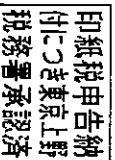 印紙税申告納
付につき東京上野
税務署承認済